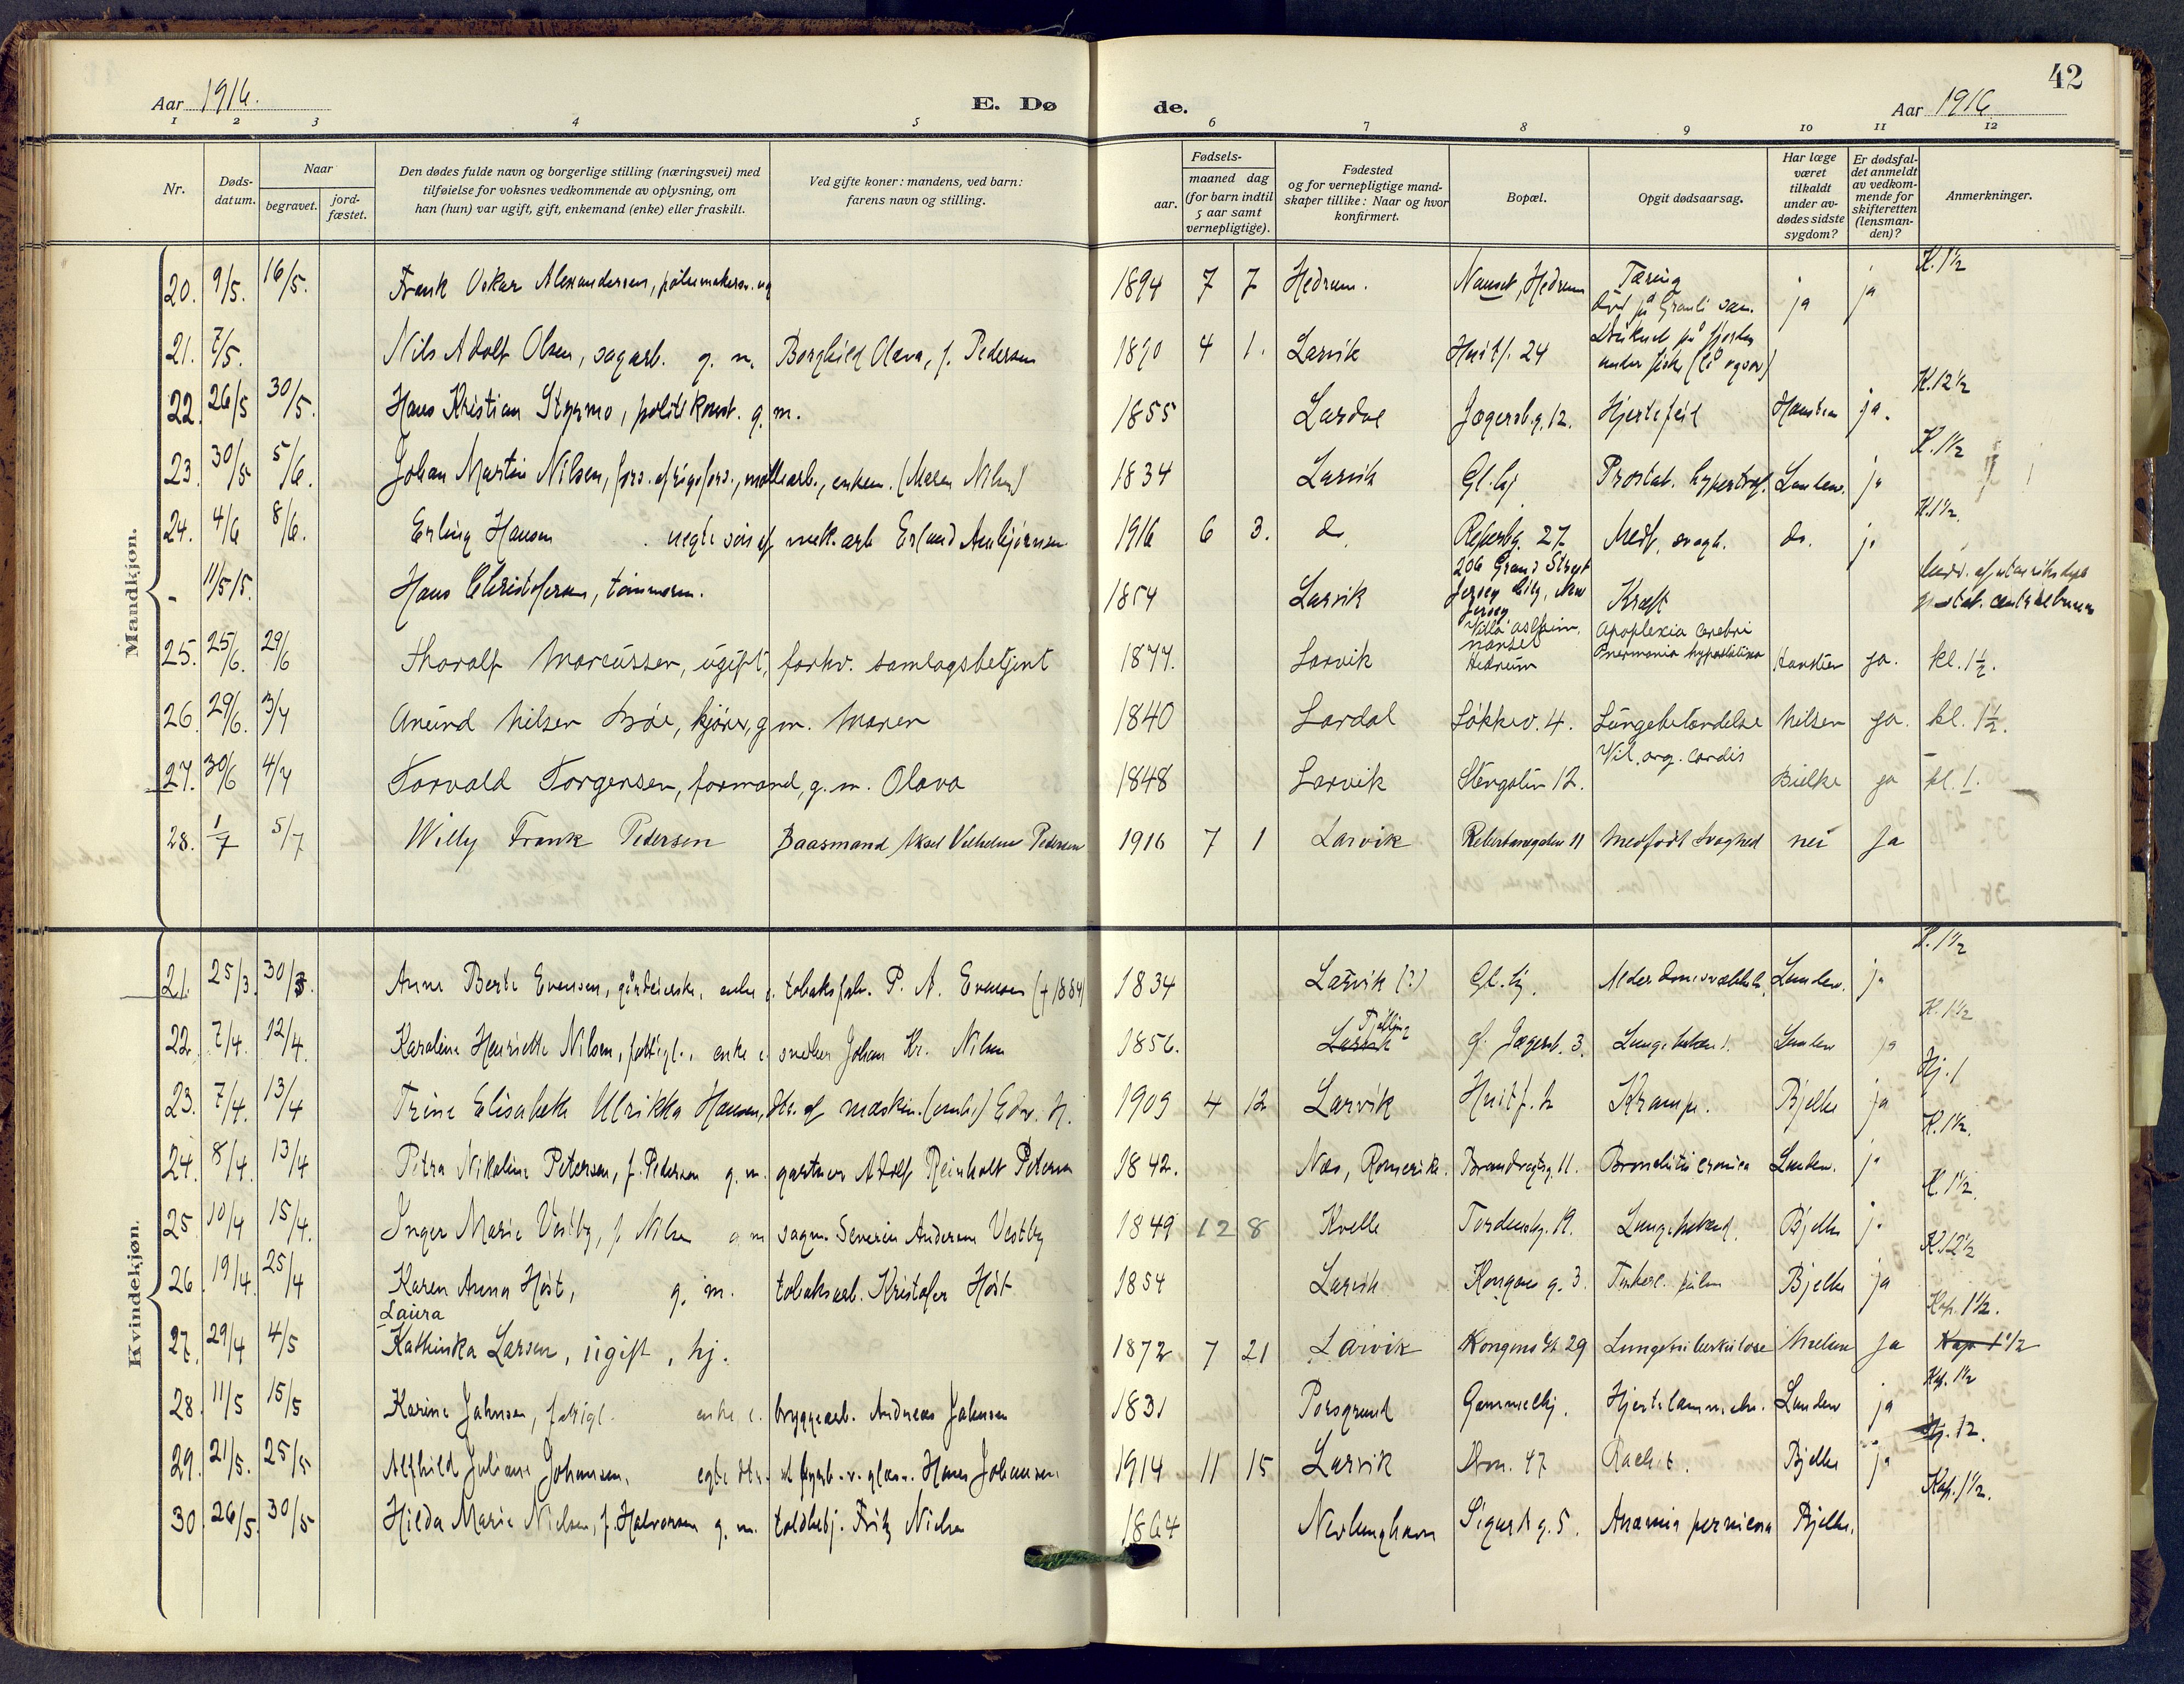 42
Aar 1916. E. Dø de. Aar 1916
1 2 3 4 5 6 7 8 9 10 11 12
Nr. Døds-datum. Naar begravet. jord-fæstet. Den dødes fulde navn og borgerlige stilling (næringsvei) med tilføielse for voksnes vedkommende av oplysning, om han (hun) var ugift, gift, enkemand (enke) eller fraskilt. Ved gifte koner: mandens, ved barn: farens navn og stilling. Fødsels- aar. maaned dag (for barn indtil 5 aar samt vernepligtige). Fødested og for vernepligtige mand-skaper tillike: Naar og hvor konfirmert. Bopæl. Opgit dødsaarsag. Har læge været tilkaldt under av-dødes sidste sygdom? Er dødsfal-det anmeldt av vedkom-mende for skifteretten (lensman-den)? Anmerkninger.
Mandkjøn.
20. 9/5. 16/5. Frank Oskar Alexandersen, ug 1894 7 7 Hedrum. Nanset, Hedrum Tæring død på Granli san. ja ja K. 1½
21. 7/5. Nils Adolf Olsen, sagarb. g. m. Borghild Olava, f. Pedersen 1890 4 1. Larvik Huitf. 24 Druknet på fjorden under fiske
22. 26/5 30/5. Hans Kristian Styrmo, politikonst. g. m. 1855 Lardal Jægersb.g. 12. Hjertefeil ja. K. 12½
23. 30/5 5/6. Johan Martin Nilsen, enkem. (Maren Nilsen) 1834 Larvik Gl.hj. Prostat. hypertrof. Lunden. ja K. 1½
24. 4/6 8/6. Erling Hansen uegte søn af mek.arb Erland Arnbjørnsen 1916 6 3. do. Reperbg. 27 Medf. svagh. do. ja K. 1½.
- 11/5 15. Hans Christofersen, tømmerm. 1854 Larvik 206 Grand Street Jersey City, New Jersey Kræft
25. 25/6. 29/6 Thoralf Marcussen, ugift, forhv. samlagsbetjent 1877. Larvik Villa Aslheim, Nanset Hedrum Apoplexia cerebri Pneumonia hypostatica ja. kl. 1½.
26. 29/6. 3/7 Anund Nilsen Bøe, kjører, g. m. Maren 1840 Lardal Løkkev. 4. Lungebetændelse Nilsen ja. kl. 1½.
27. 30/6 4/7 Torvald Torgersen, formand, g. m. Olava 1848 Larvik Stengaten 12. Vit. org. cordis Bielke ja kl. 1.
28. 1/7 5/7 Willy Frank Pedersen Baasmand Aksel Vilhelm Pedersen 1916 7 1 Larvik Reberbanegaten 11 Medfødt Svaghed nei Ja
Kvindekjøn.
21. 25/3. 30/3. Anne Berte Evensen, gårdeierske, enke e. tobaksfabr. P. A. Evensen († 1884) 1834 Larvik (?) Gl. hj. Alderdomssvækkelse. Lunden. ja K. 1½
22. 7/4. 12/4. Karoline Henriette Nilsen, fattigl., enke e. snekker Johan Kr. Nilsen 1856. Larvik Tjølling? Jægersb. 3. Lungebetænd. Lunden ja K. 1½
23. 7/4. 13/4 Trine Elisabeth Ulrikka Hansen, dtr. af maskin. Edv. H. 1909 4 12 Larvik Huitf. Krampe. Bjelke ja Hj. 1
24. 8/4. 13/4 Petra Nikoline Petersen, f. Pedersen g. m. gartner Adolf Reinholt Petersen 1842. Næs, Romerike. Brandvagtsg. 11. Bronchitis cronica Lunden. ja K. 1½.
25. 10/4 15/4. Inger Marie Vestby, f. Nilsen g m sagm. Severin Andersen Vestby 1849 12 8 Kvelle Tordenskg. 19. Lungebetænd. Bjelke ja K. 1½.
26. 19/4. 25/4 Karen Anna Høst, g. m. tobaksarb. Kristofer Høst 1854 Larvik Kongens g. 3. Tuberc. pulm Bjelke ja K. 12½
27. 29/4 4/5 Laura Kathinka Larsen, ugift, hj. 1872 7 21 Larvik Kongensgt 29 Lungetuberkulose ja Kap. 1½. Kap 1½
28. 11/5 15/5 Karine Jahnsen, fattigl. enke e. bryggearb. Andreas Jahnsen 1831 Porsgrund Gammelhj. Hjertelammelse. Lunden ja Kap. 1½
29. 21/5. 25/5 Alfhild Juliane Johansen, egte dtr. af fyrb. v. glasv. Hans Johansen. 1914 11 15 Larvik Dron. 47 Rachit. Bjelke ja Hj. 12.
30. 26/5. 30/5 Hilda Marie Nielsen, f. Halvorsen g. m. toldbetj. Fritz Nielsen 1864 Nevlunghavn Sigurds g. 5. Anæmia perniciosa Bjelke. Kap. 1½.